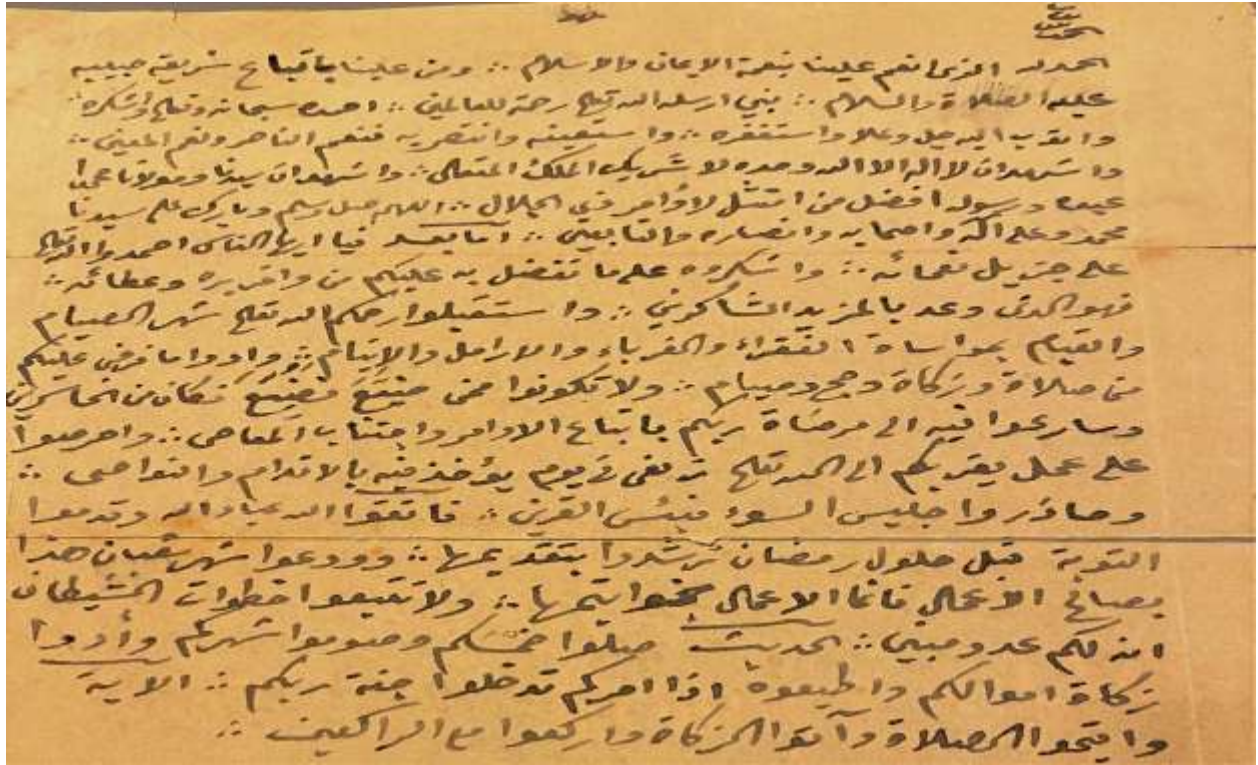 الحمد لله الذي انعم علينا بنعمة الايمان والاسلام ؞ ومن علينا باتباع شريعة حبيبه
عليه الصلاة والسلام ؞ نبي ارسله الله تعالى رحمة للعالمين ؞ احمده سبحانه وتعالى واشكره
واتوب اليه جل وعلا واستغفره ؞ واستعينه وانتصر به فنعم الناصر ونعم المعين ؞
واشهد ان لا اله الا الله وحده لا شريك الملك المتعالى ؞ واشهد ان سيدنا ومولانا محمدا
عبده ورسوله افضل من امتثل لاوامر ذي الجلال ؞ اللهم صل وسلم وبارك على سيدنا
محمد وعلى اله واصحابه وانصاره والتابعين ؞ اما بعد فيا ايها الناس احمدوا الله تعالى
على جزيل نعمائه ؞ واشكروه على ما تفضل به عليكم من وافر بره وعطائه ؞
فهو الذى وعد بالمزيد الشاكرين ؞ واستقبلوا رحمكم الله تعالى شهر الصيام
والقيام بمواساة الفقراء والغرباء والارامل والايتام ؞ وادوا ما فرض عليكم
من صلاة وزكاة وحج وصيام ؞ ولا تكونوا ممن ضيَّعَ فضيّعَ فكان من الخاسرين
وسارعوا فيه الى مرضاة ربكم باتباع الاوامر واجتناب المعاصى ؞ واحرصوا
على عمل يقربكم الى الله تعالى زلفى في يوم يؤخذ فيه بالاقدام والنواصى ؞
وحاذروا جليس السوء فبئس القرين ؞ فاتقوا الله عباد الله وقدموا
التوبة قبل حلول رمضان ترشدوا بتقديمها ؞ وودعوا شهر شعبان هذا
بصالح الاعمال فانما الاعمال بخواتيمها ؞ ولا تتبعوا خطوات الشيطان
انه لكم عدو مبين ؞ الحديث صلوا خمسكم وصوموا شهركم وأدوا
زكاة اموالكم واطيعوا اذا امركم تدخلوا جنة ربكم ؞ الاية
واقيموا الصلاة وآتوا الزكاة واركعوا مع الراكعين ؞